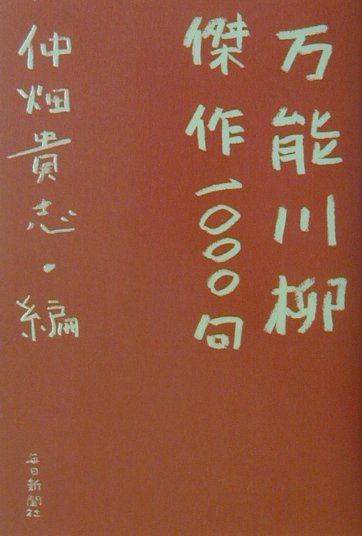 万能川柳
傑作一〇〇〇句
仲畑貴志・編
毎日新聞社